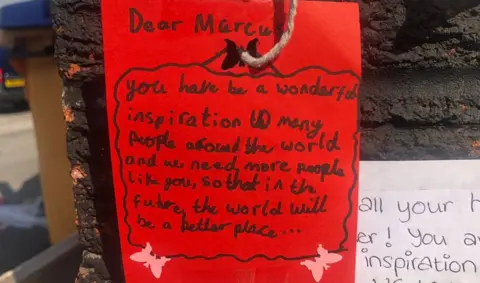 Dear Marcu
you have be a wonderful
inspiration to many
people around the world
and we need more people
like you, so that in the
future, the world will
be a better place...
all your h
er! You a
inspiration